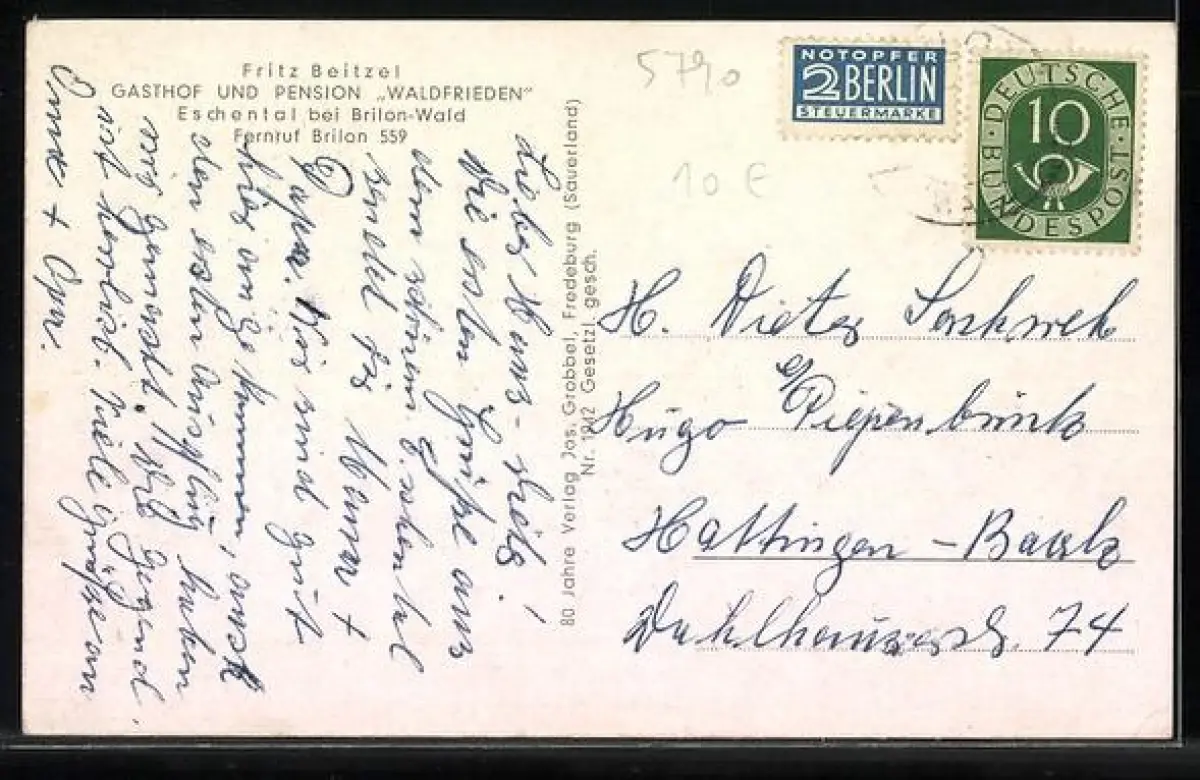 Fritz Beitzel
GASTHOF UND PENSION „WALDFRIEDEN"
Eschental bei Brilon-Wald
Fernruf Brilon 559
Lieber Hans-Dieter!
Die ersten Grüße aus
dem schönen Eschental
sendet Dir Mama +
Papa. Wir sind gut
hier angekommen, auch
den ersten Ausflug haben
wir gemacht. Die Gegend
ist herrlich. Viele Grüße an
Oma + Opa.
80 Jahre Verlag Jos. Grobbel, Fredeburg (Sauerland)
Nr. 1912 Gesetzl. gesch.
5790
10 €
NOTOPFER
2 BERLIN
STEUERMARKE
DEUTSCHE BUNDESPOST
10
H. Dieter
Hugo Piepenbrink
Hattingen - Baak
Dahlhauserstr. 74